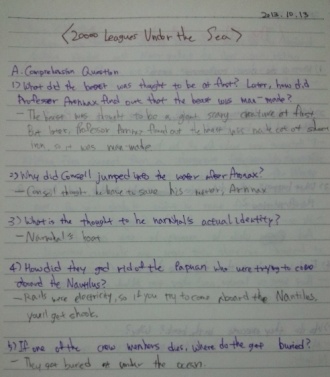 2012.10.13
<20000 Leagues Under the Sea>
A. Comprehension Question
1) What did the beast was thought to be at first? Later, how did
Professor Aronnax find out that the beast was man-made?
- The beast was thought to be a giant scary creature at first
But later, Professor Aronnax find out the beast was made out of
so it was man-made
2) Why did Consell jumped into the water after Aronax?
- Consell thought he have to save his master, Aronnax
3) What is the thought to be narwhal's actual identity?
- Narwhal's boat
4) How did they get rid of the Papuan who were trying to come
aboard the Nautilus?
- Rails were electricity, so if you try to come aboard the Nautilus,
you'll get shock.
5) If one of the crew members dies, where do they get buried?
- They are buried under the ocean.